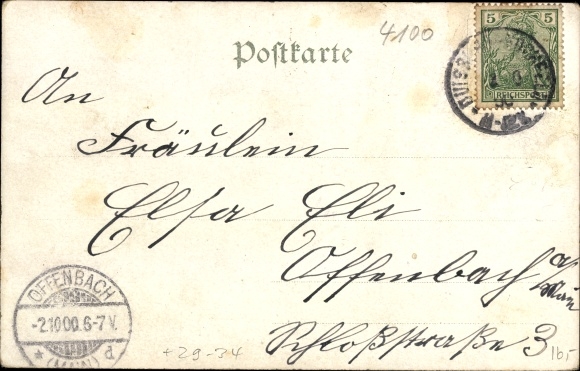 4100
Postkarte
5
REICHSPOST
An
Fräulein
Elsa Eli
Offenbach a/
Main
Schloßstraße 3
OFFENBACH
-2.10.00.6-7 V.
* (MAIN) d
+29-34
16,-